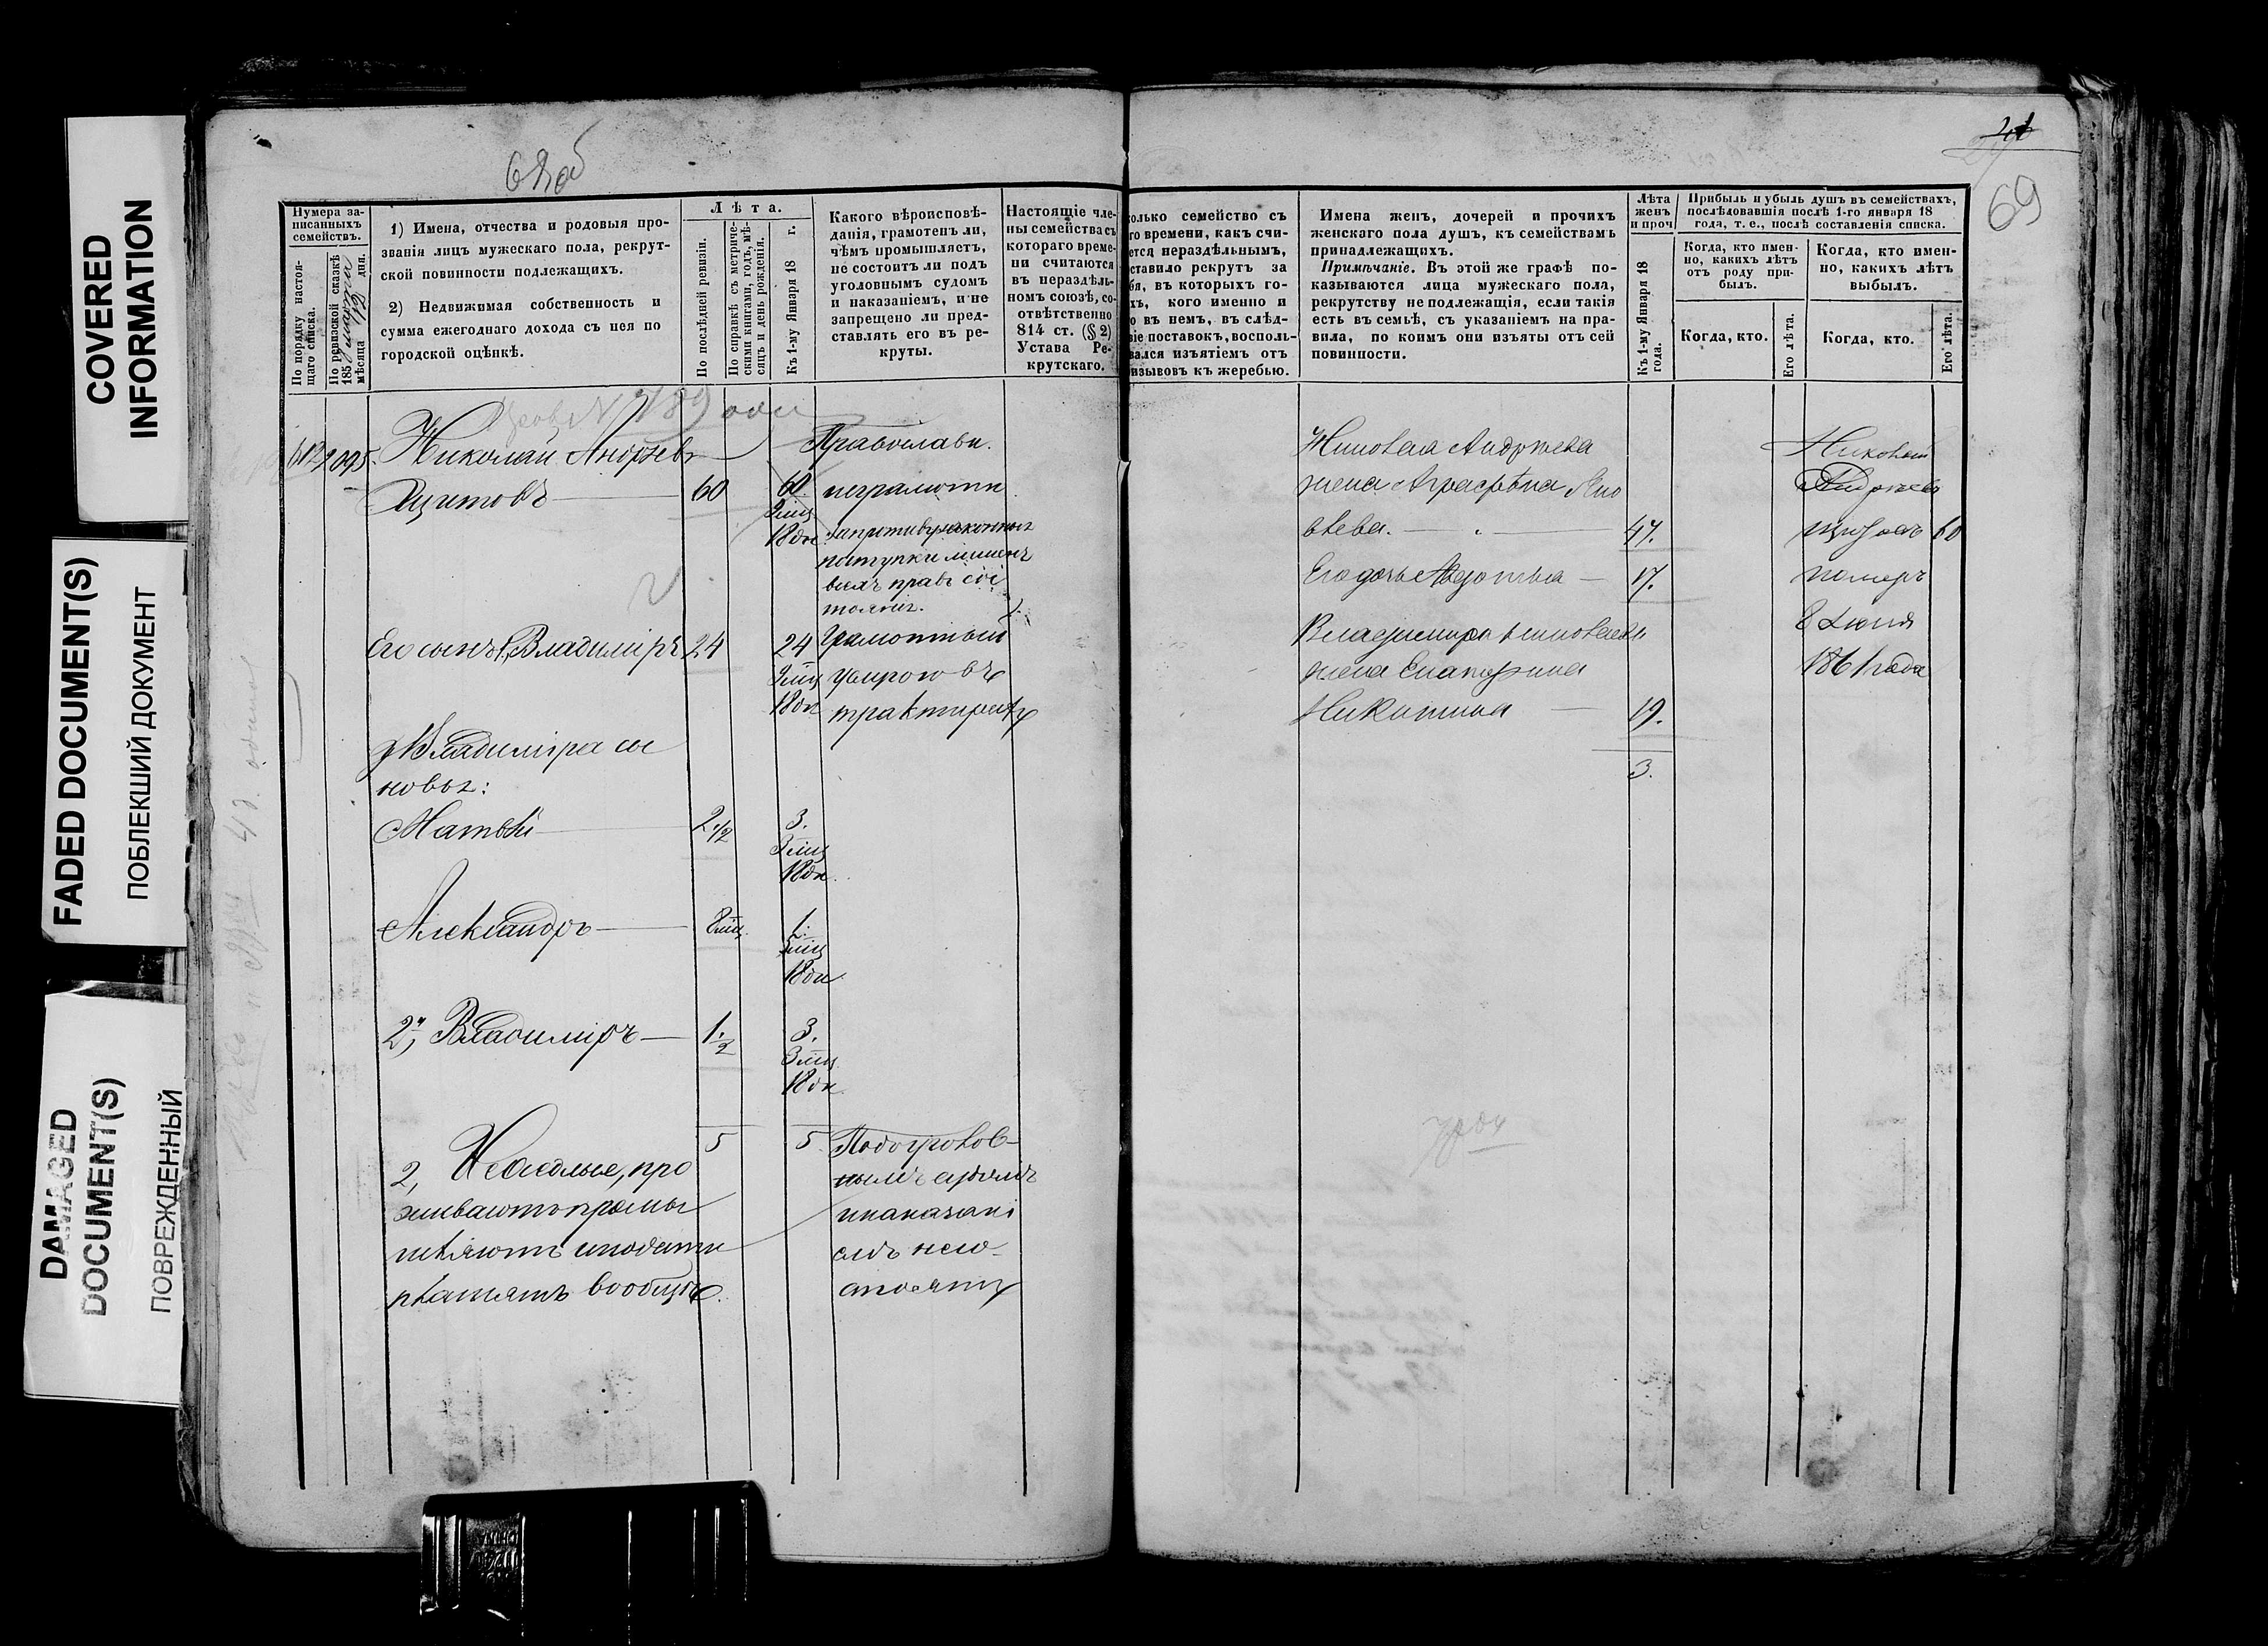 COVERED
INFORMATION
FADED DOCUMENT(S)
ПОБЛЕКШИЙ ДОКУМЕНТ
DAMAGED
DOCUMENT(S)
ПОВРЕЖДЕННЫЙ
68 об
Нумера за-
писанныхъ
семействъ.
По порядку настоя-
щаго списка.
По ревизской сказкѣ
185 марта
мѣсяца дня.
1) Имена, отчества и родовыя про-
званія лицъ мужескаго пола, рекрут-
ской повинности подлежащихъ.
2) Недвижимая собственность и
сумма ежегоднаго дохода съ нея по
городской оцѣнкѣ.
Лѣта.
По послѣдней ревизіи.
По справкѣ съ метриче-
скими книгами, годъ, мѣ-
сяцъ и день рожденія.
Къ 1-му Января 18 г.
Какого вѣроисповѣ-
данія, грамотенъ ли,
чѣмъ промышляетъ,
не состоитъ ли подъ
уголовнымъ судомъ
и наказаніемъ, и не
запрещено ли пред-
ставлять его въ ре-
круты.
Настоящіе чле-
ны семейства съ
котораго време-
ни считаются
въ нераздѣль-
номъ союзѣ, со-
отвѣтственно
814 ст. (§ 2)
Устава Ре-
крутскаго.
Николай Андреевъ
60
60
18 дн
Православн.
неграмотн
поступки лишенъ
всѣхъ правъ сос
тоянія.
Его сынъ 1, Владиміръ 24
24
18 дн
Грамотный
въ
трактирѣ
у Владиміра сы
новья:
Матвѣй
2 1/2
3.
3 мц
18 дн
Александръ
8 мц.
1.
18 дн
2й, Владиміръ
1 1/2
3.
3 мц
18 дн
5
5
2,
про
живаютъ
и подати
платятъ вообще.
Подъ уголов-
нымъ судомъ
и наказані
емъ не со-
стоятъ
69
олько семейство съ
го времени, какъ счи-
ется нераздѣльнымъ,
ставило рекрутъ за
бя, въ которыхъ го-
хъ, кого именно и
о въ немъ, въ слѣд-
віе поставокъ, восполь-
вался изъятіемъ отъ
изывовъ къ жеребью.
Имена женъ, дочерей и прочихъ
женскаго пола душъ, къ семействамъ
принадлежащихъ.
Примѣчаніе. Въ этой же графѣ по-
казываются лица мужескаго пола,
рекрутству не подлежащія, если такія
есть въ семьѣ, съ указаніемъ на пра-
вила, по коимъ они изъяты отъ сей
повинности.
Лѣта
женъ
и проч
Къ 1-му Января 18
года.
Прибыль и убыль душъ въ семействахъ,
послѣдовавшія послѣ 1-го января 18
года, т. е., послѣ составленія списка.
Когда, кто имен-
но, какихъ лѣтъ
отъ роду при-
былъ.
Когда, кто имен-
но, какихъ лѣтъ
выбылъ.
Когда, кто.
Его лѣта.
Когда, кто.
Его лѣта.
Николая Андреева
жена Аграфѣна Яко
влева.
47.
Его дочь Авдотья
17.
Владимира Николаева
жена Екатерина
Никитина
19.
3.
Николай
Андреевъ
60
померъ
8 Июня
1861 года